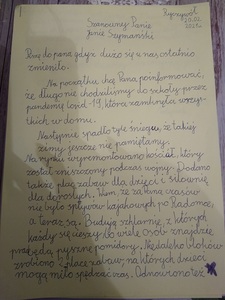 Ryczywół
30.03.
2021 r.
Szanowny Panie
Janie Szymański
Piszę do pana gdyż dużo się u nas ostatnio
zmieniło.
Na początku chcę Pana poinformować,
że długo nie chodziliśmy do szkoły przez
pandemię Covid-19, która zamknęła wszy-
stkich w domu.
Następnie spadło tyle śniegu, że takiej
zimy jeszcze nie pamiętamy.
Na rynku wyremontowano kościół, który
został zniszczony podczas wojny. Dodano
także plac zabaw dla dzieci i siłownię
dla dorosłych. Wiem, że za Pana czasów
nie było spływów kajakowych po Radomce,
a teraz są. Budują szklarnie, z których
każdy się cieszy bo wiele osób znajdzie
pracę i będą pyszne pomidory. Niedaleko bloków
zrobiono place zabaw, na których dzieci
mogą miło spędzać czas. Odnowiono też